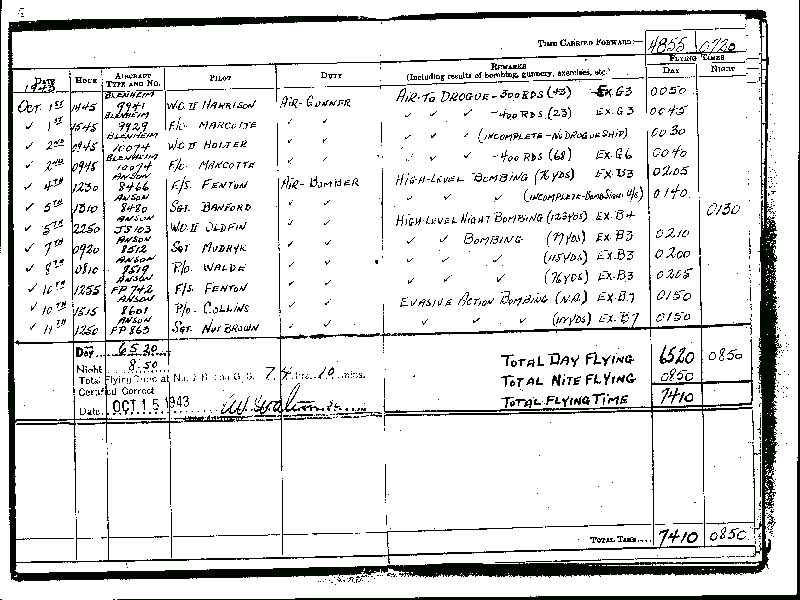 TIME CARRIED FORWARD:— 4855 0720
FLYING TIMES
DATE 1943 HOUR AIRCRAFT TYPE AND NO. PILOT DUTY REMARKS (Including results of bombing, gunnery, exercises, etc.) DAY NIGHT
OCT. 1ST 1445 BLENHEIM 9941 W.O.II HARRISON AIR-GUNNER AIR-TO DROGUE-300RDS (43) EX.G3 0050
✓ 1ST 1545 BLENHEIM 9929 F/O. MARCOTTE ✓ ✓ ✓ ✓ ✓ -400RDS (23) EX.G3 0045
✓ 2ND 0945 BLENHEIM 10074 W.O.II HOLTER ✓ ✓ ✓ ✓ ✓ (INCOMPLETE-NO DROGUE SHIP) 0030
✓ 2ND 0945 BLENHEIM 10074 F/O. MARCOTTE ✓ ✓ ✓ ✓ ✓ -400 RDS (68) EX.G6 0040
✓ 4TH 1230 ANSON 8466 F/S. FENTON AIR-BOMBER HIGH-LEVEL BOMBING (76YDS) EX.B3 0205
✓ 5TH 1310 ANSON 8480 SGT. BANFORD ✓ ✓ ✓ ✓ ✓ (INCOMPLETE-BOMB SIGHT U/S) 0140
✓ 5TH 2250 ANSON JS103 W.O.II OLDFIN ✓ ✓ HIGH-LEVEL NIGHT BOMBING (123YDS) EX.B4 0130
✓ 7TH 0920 ANSON 8512 SGT MUDRYK ✓ ✓ ✓ ✓ BOMBING (77YDS) EX.B3 0210
✓ 8TH 0810 ANSON 8519 P/O. WALDE ✓ ✓ ✓ ✓ ✓ (115YDS) EX.B3 0200
✓ 10TH 1255 ANSON FP742 F/S. FENTON ✓ ✓ ✓ ✓ ✓ (76YDS) EX.B3 0205
✓ 10TH 1515 ANSON 8601 P/O. COLLINS ✓ ✓ EVASIVE ACTION BOMBING (N.R.) EX.B7 0150
✓ 11TH 1250 ANSON FP863 SGT. NUT BROWN ✓ ✓ ✓ ✓ ✓ (111YDS) EX.B7 0150
Day 65 20 TOTAL DAY FLYING 6520 0850
Night 8.50 TOTAL NITE FLYING 0850
Total Flying Time at No. B. and G. S. 74 hrs. 10 mins. TOTAL FLYING TIME 7410
Certified Correct
Date OCT 15 1943
TOTAL TIME.... 7410 0850